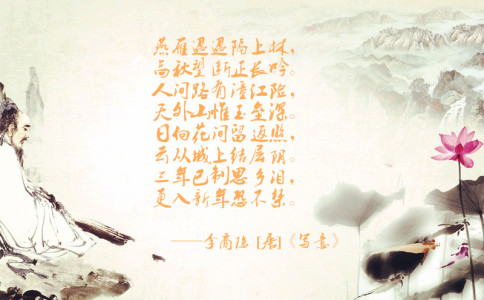 燕雁迢迢隔上林，
高秋望断正长吟。
人间路有潼江险，
天外山惟玉垒深。
日向花间留返照，
云从城上结层阴。
三年已制思乡泪，
更入新年恐不禁。
——李商隐 [唐]《写意》